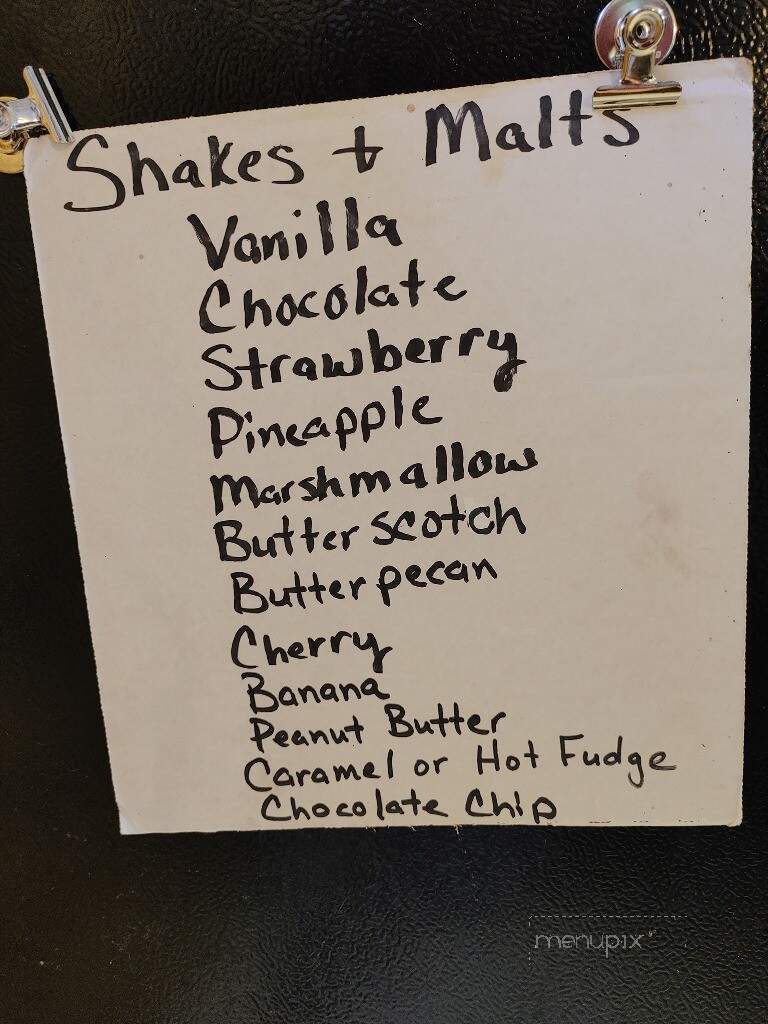 Shakes + Malts
Vanilla
Chocolate
Strawberry
Pineapple
Marshmallow
Butterscotch
Butter pecan
Cherry
Banana
Peanut Butter
Caramel or Hot Fudge
Chocolate Chip
menupix